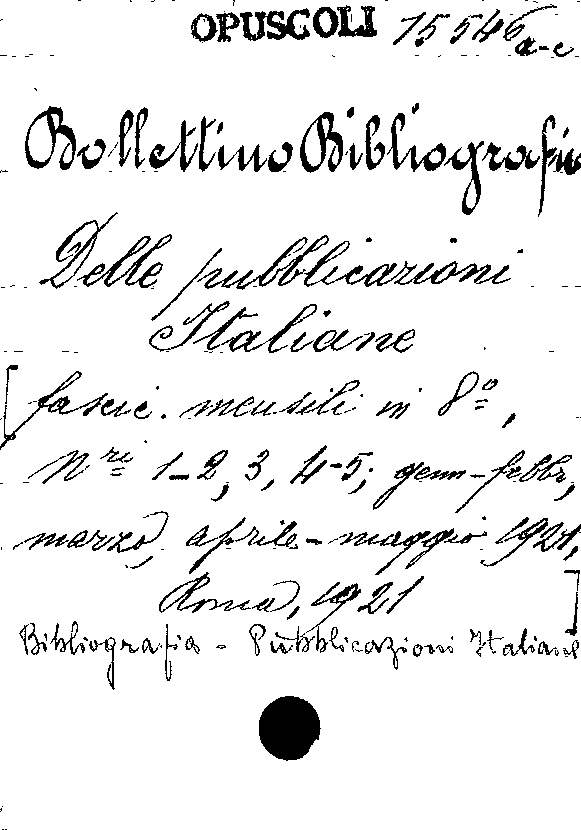 OPUSCOLI 15546 a-c
Bollettino Bibliografico
Delle pubblicazioni
Italiane
[fascic. mensili in 8º,
Nri 1-2, 3, 4-5; genn-febbr,
marzo, aprile-maggio 1921,
Roma, 1921]
Bibliografia - Pubblicazioni Italiane